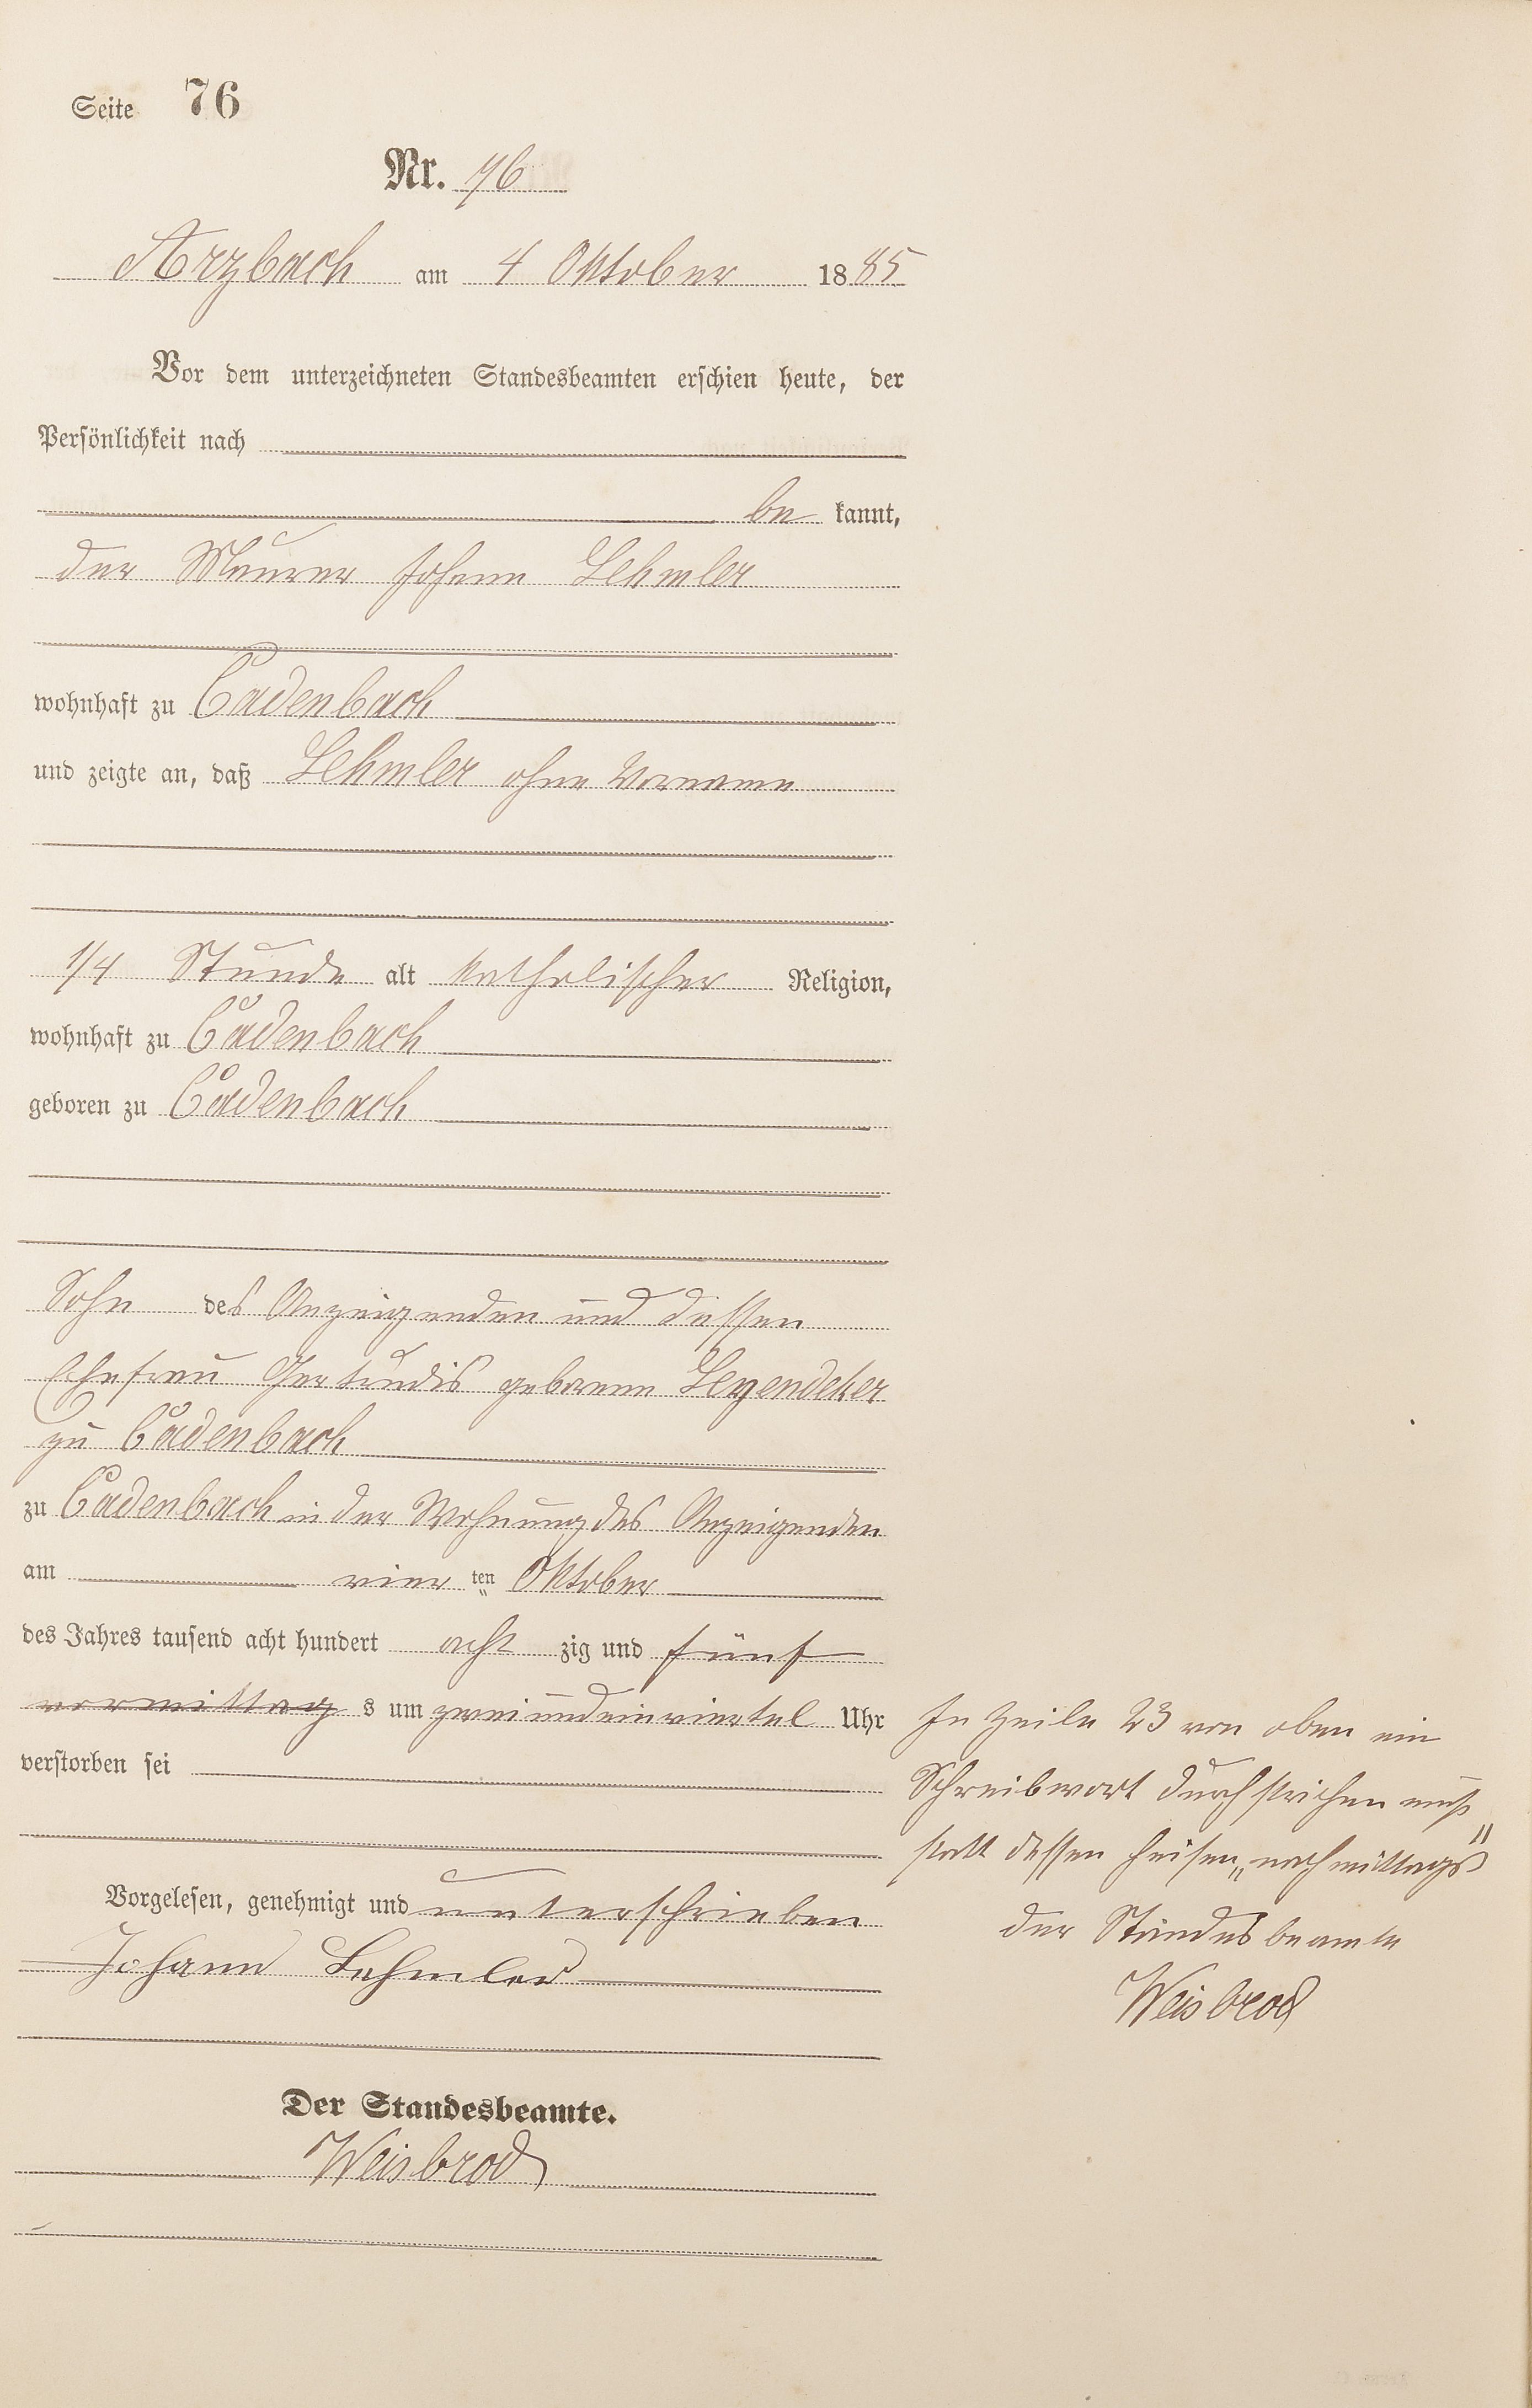 Seite 76
Nr. 76
Arzbach am 4 Oktober 1885
Vor dem unterzeichneten Standesbeamten erschien heute, der
Persönlichkeit nach
be kannt,
der Maurer Johann Lehmler
wohnhaft zu Cadenbach
und zeigte an, daß Lehmler ohne Vorname
1/4 Stunde alt katholischer Religion,
wohnhaft zu Cadenbach
geboren zu Cadenbach
Sohn des Anzeigenden und dessen
Ehefrau Gertrudis geborene Leyendeker
zu Cadenbach
zu Cadenbach in der Wohnung des Anzeigenden
am vier ten Oktober
des Jahres tausend acht hundert acht zig und fünf
vormittag s um zweiundeinviertel Uhr
verstorben sei
In Zeile 23 von oben ein
Schreibwort durchstrichen muß
statt dessen heisen „nachmittags"
der Standesbeamte
Weisbrod
Vorgelesen, genehmigt und unterschrieben
Johann Lehmler
Der Standesbeamte.
Weisbrod